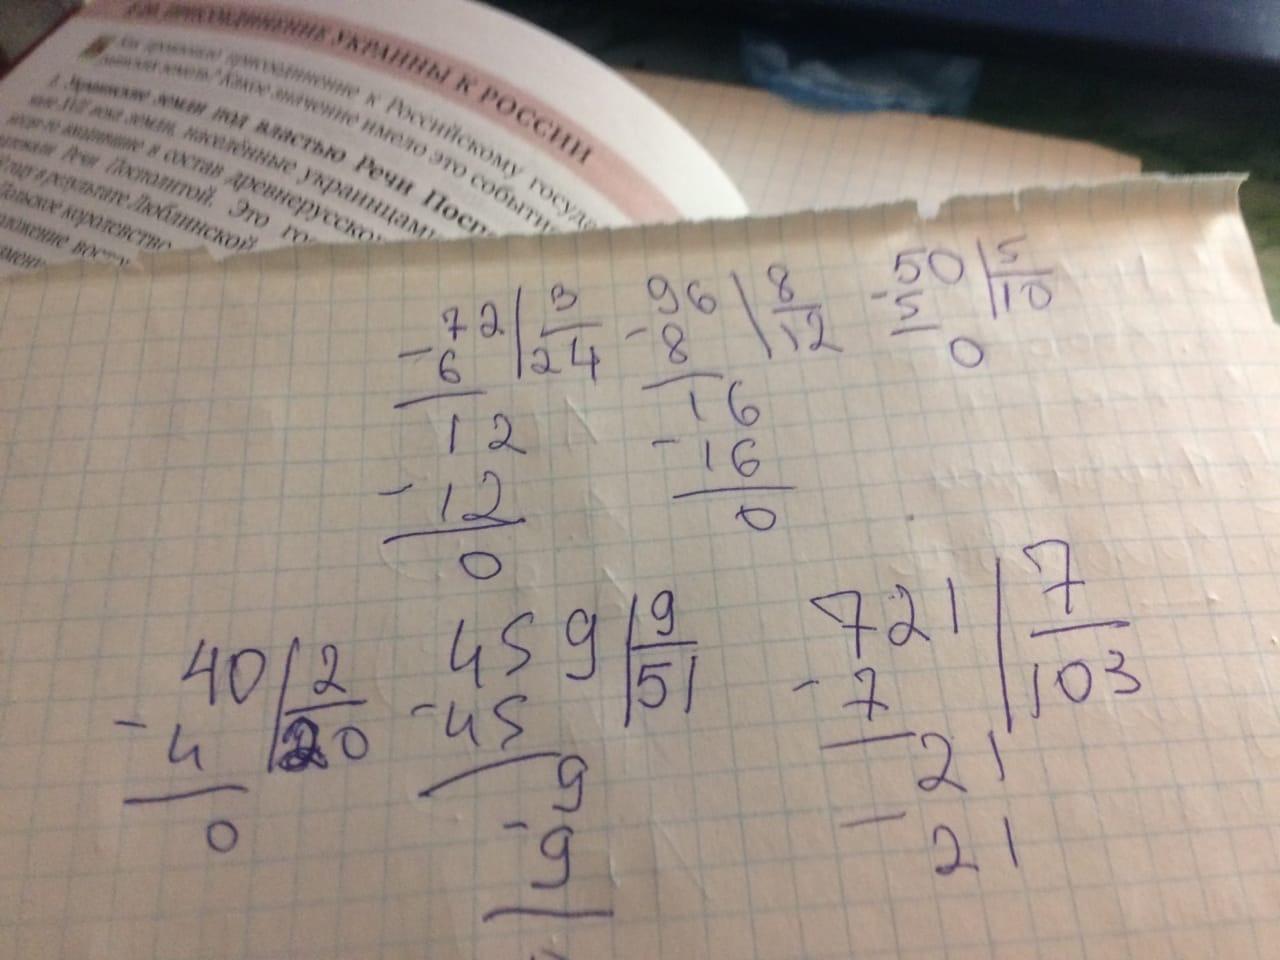 ПРИСОЕДИНЕНИЕ УКРАИНЫ К РОССИИ
Как произошло присоединение к Российскому госуда
земель? Какое значение имело это событи
1. Украинские земли под властью Речи Посп
XVII века земли, населённые украинцами
входившие в состав древнерусско
Речи Посполитой. Это го
в результате Люблинской
Польское королевство
72 3
- 6 24
12
- 12
0
96 8
- 8 12
16
- 16
0
50 5
- 5 10
0
40 2
- 4 20
0
459 9
- 45 51
9
- 9
721 7
- 7 103
21
- 21